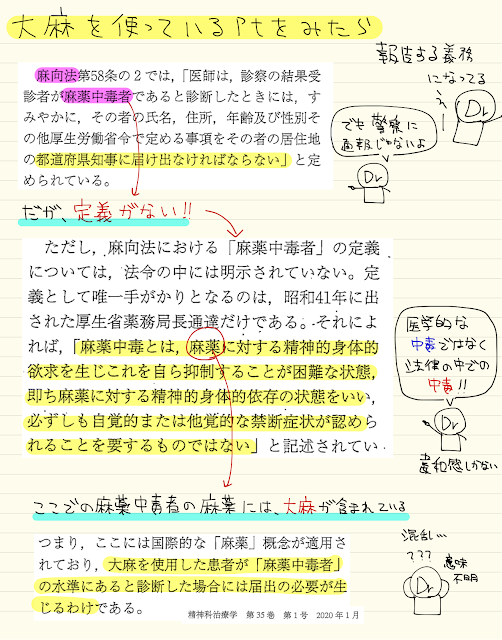 大麻を使っているPtをみたら
麻向法第58条の2では，「医師は，診察の結果受
診者が麻薬中毒者であると診断したときには，す
みやかに，その者の氏名，住所，年齢及び性別そ
の他厚生労働省令で定める事項をその者の居住地
の都道府県知事に届け出なければならない」と定
められている。
報告する義務
になってる
Dr
でも警察に
通報じゃないよ
Dr
だが、定義がない!!
ただし，麻向法における「麻薬中毒者」の定義
については，法令の中には明示されていない。定
義として唯一手がかりとなるのは，昭和41年に出
された厚生省薬務局長通達だけである。それによ
れば，「麻薬中毒とは，麻薬に対する精神的身体的
欲求を生じこれを自ら抑制することが困難な状態，
即ち麻薬に対する精神的身体的依存の状態をいい，
必ずしも自覚的または他覚的な禁断症状が認めら
れることを要するものではない」と記述されてい
医学的な
中毒ではなく
法律の中での
中毒!!
Dr
違和感しかない
ここでの麻薬中毒者の麻薬には、大麻が含まれている
つまり，ここには国際的な「麻薬」概念が適用さ
れており，大麻を使用した患者が「麻薬中毒者」
の水準にあると診断した場合には届出の必要が生
じるわけである。
精神科治療学 第35巻 第1号 2020年1月
混乱…
???
Dr
意味
不明